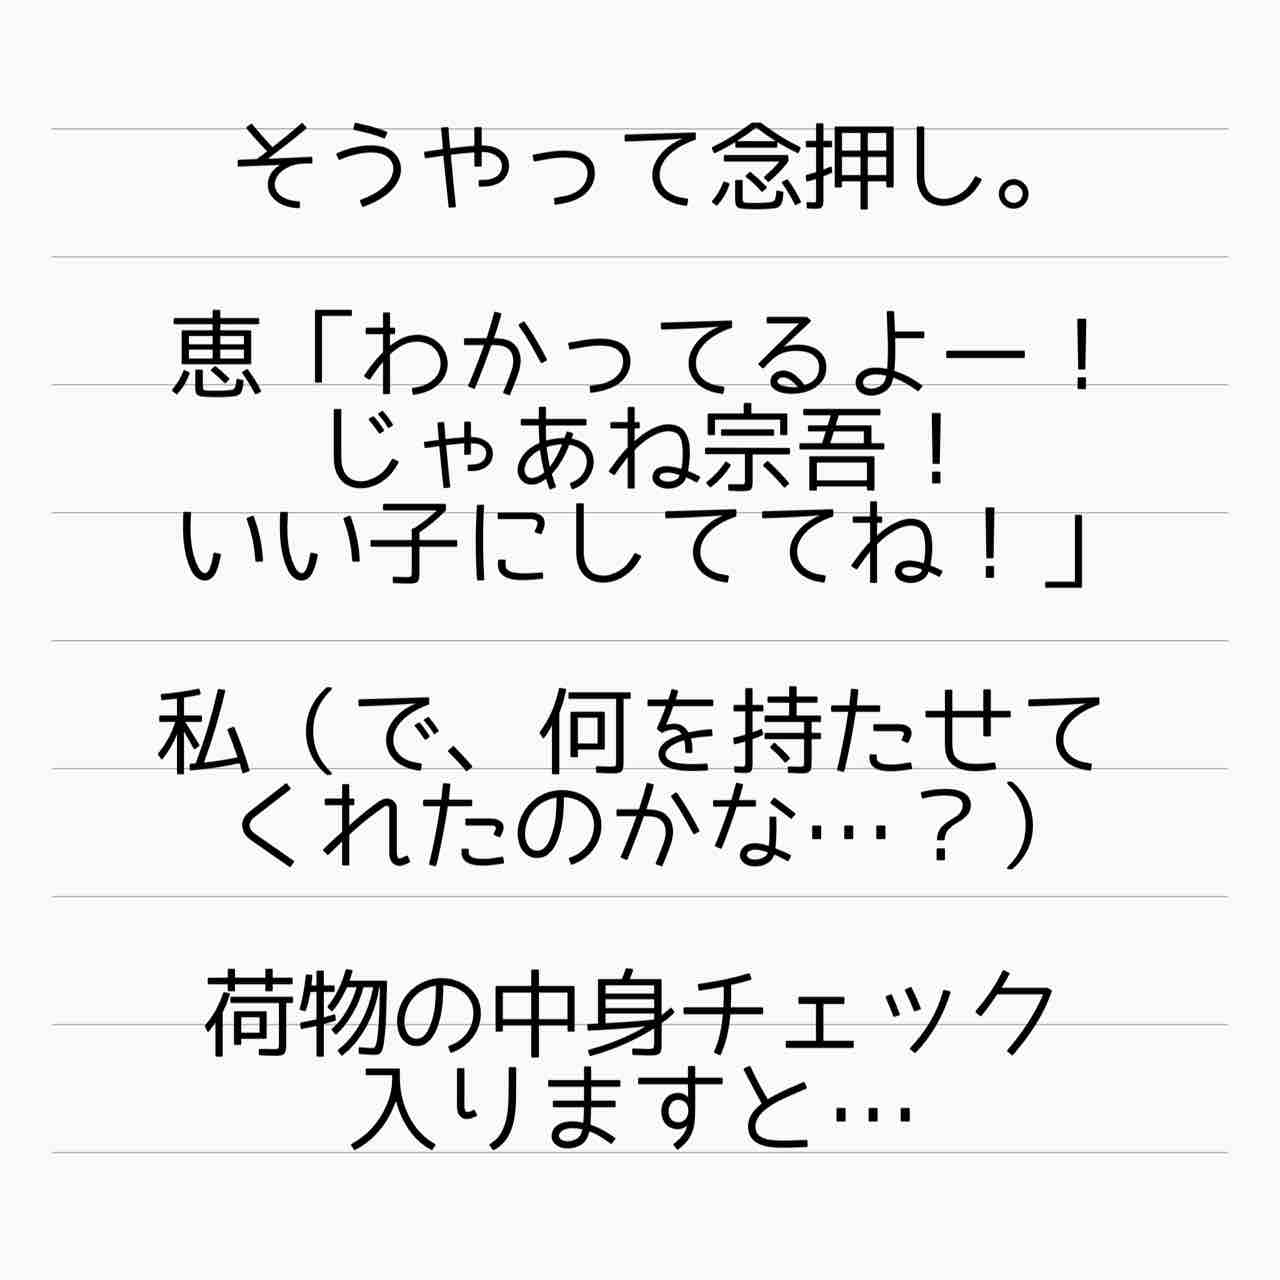 そうやって念押し。
恵「わかってるよー！
じゃあね宗吾！
いい子にしててね！」
私（で、何を持たせて
くれたのかな…？）
荷物の中身チェック
入りますと…